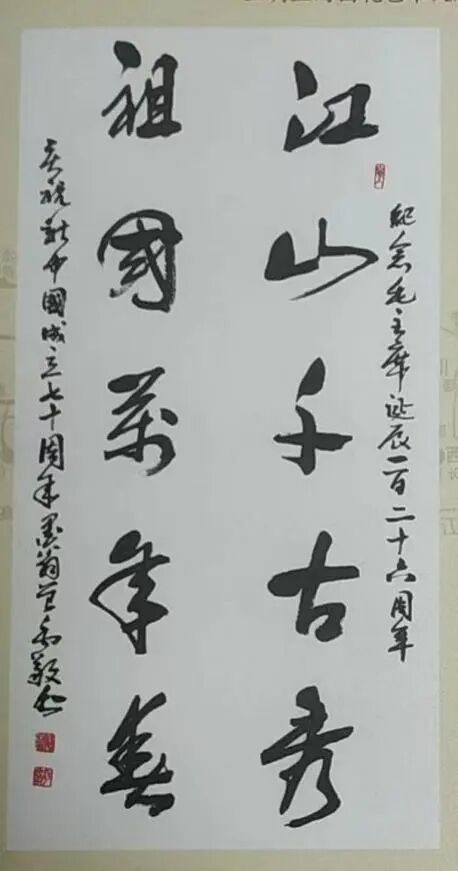 江山千古秀
祖國萬年春
紀念毛主席誕辰一百二十六周年
慶祝新中國成立七十周年墨翁